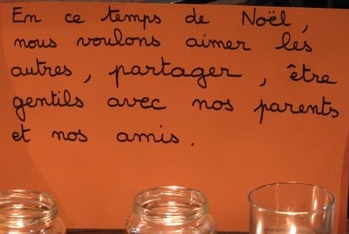 En ce temps de Noël,
nous voulons aimer les
autres, partager, être
gentils avec nos parents
et nos amis.